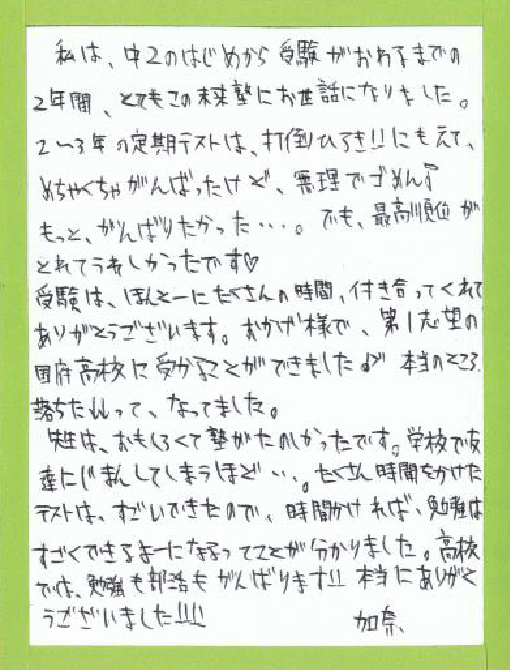 私は、中2のはじめから受験がおわるまでの
2年間、とてもこの未来塾にお世話になりました。
2〜3年の定期テストは、打倒ひろき!!にもえて、
めちゃくちゃがんばったけど、無理でゴめん゛
もっと、がんばりたかった・・・。でも、最高順位が
とれてうれしかったです♡
受験は、ほんとーにたくさんの時間、付き合ってくれて
ありがとうございます。おかげ様で、第1志望の
国府高校に受かることができました♪゛本当のところ、
落ちたwって、なってました。
先生は、おもしろくて塾がたのしかったです。学校で友
達にじまんしてしまうほど・・・。たくさん時間をかけた
テストは、すごいできたので、時間かければ、勉強は
すごくできるよーになるってことが分かりました。高校
では、勉強も部活もがんばります!! 本当にありがと
うございました!!!!
加奈